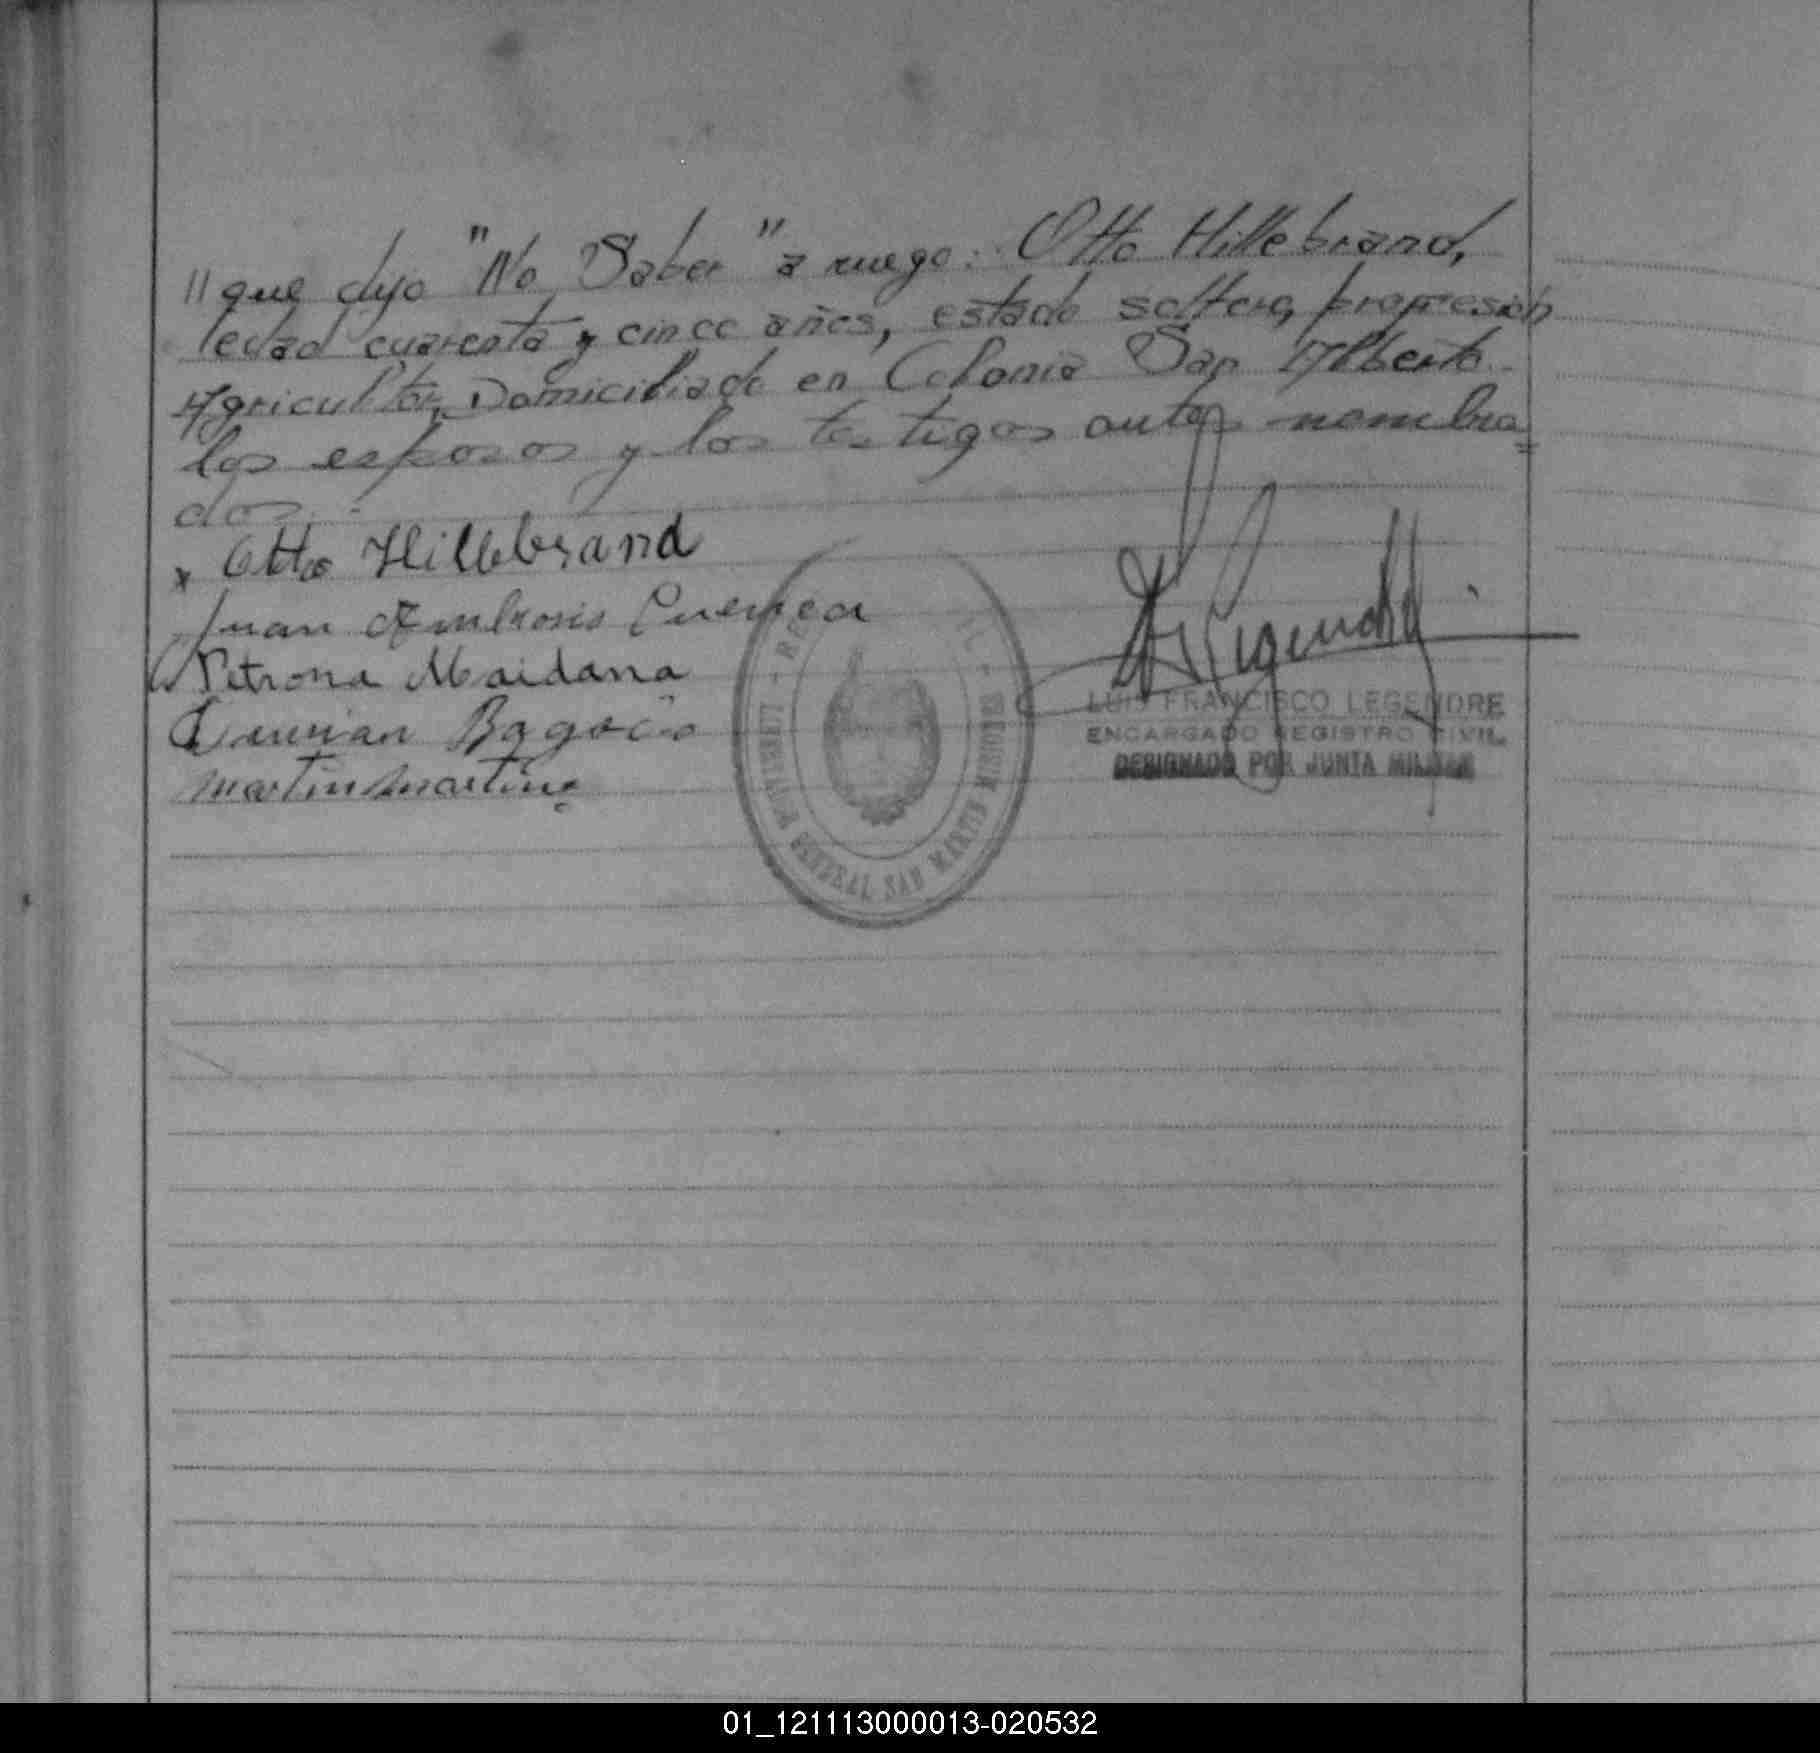 "que dijo "No Saber" a ruego: Otto Hillebrand,
edad cuarenta y cinco años, estado soltero, profesion
Agricultor, Domiciliado en Colonia San Alberto.
los esposos y los testigos antes nombra=
dos.
x Otto Hillebrand
Juan Ambrosio Cuenca
Petrona Maidana
Martin Martinez
LUIS FRANCISCO LEGENDRE
ENCARGADO REGISTRO CIVIL
DESIGNADO POR JUNTA MILITAR
GENERAL SAN MARTIN MISIONES
01_121113000013-020532